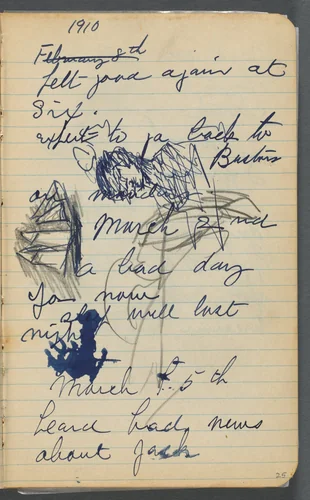 1910
February 8th
felt good again at
Six.
expect to go back to
Bastins
on monday
March 2nd
a bad day
for now
night will last
March 5th
heard bad news
about Jack
25